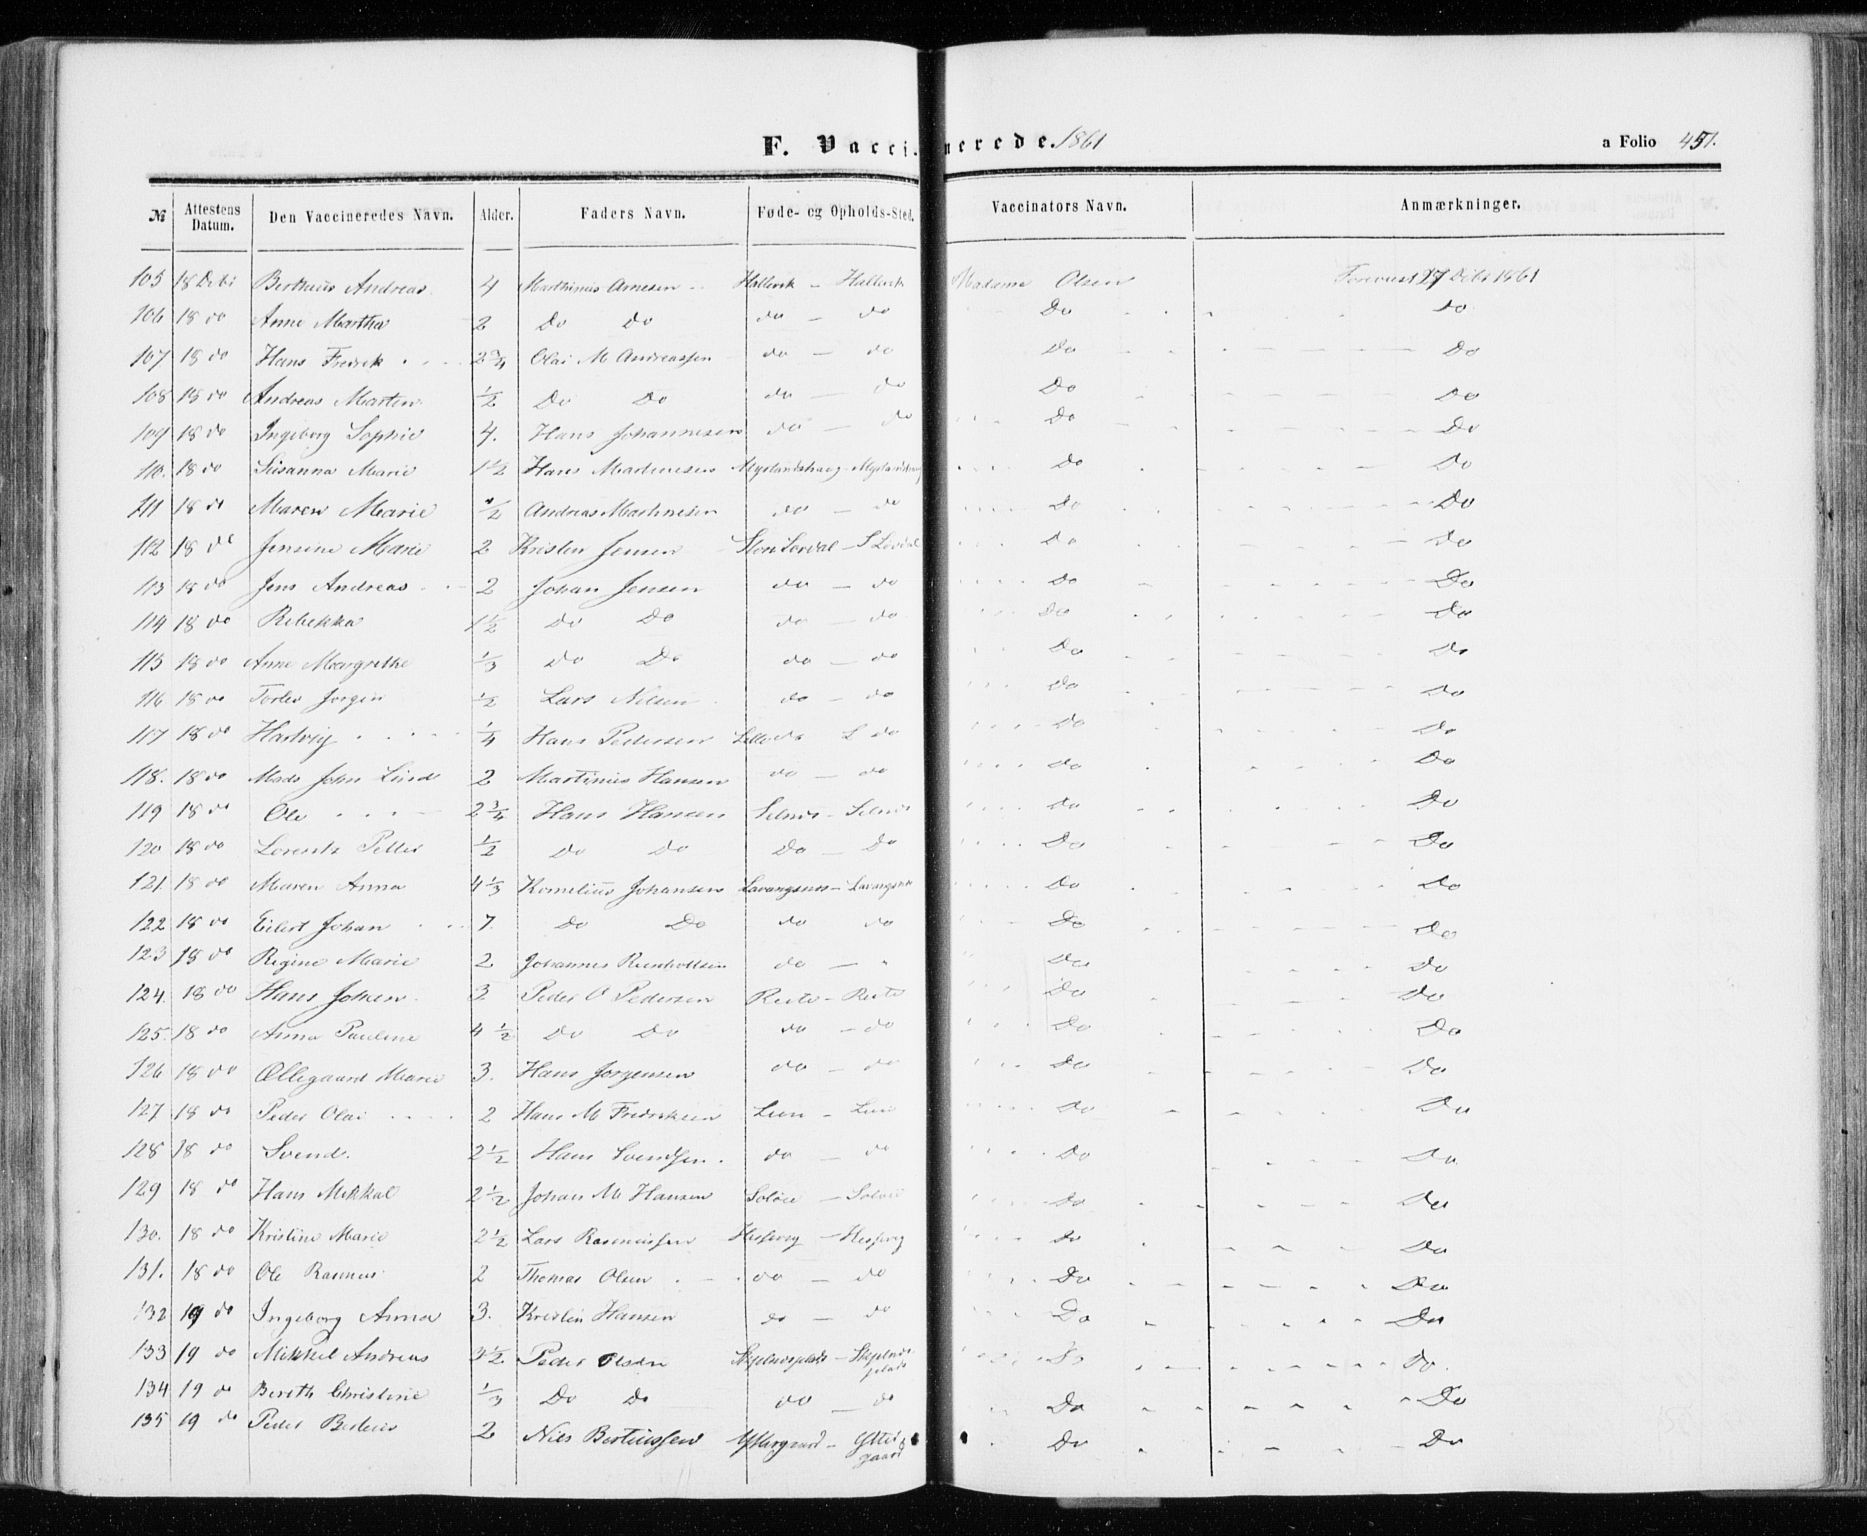 F. Vaccinerede. 1861
a Folio 451.
№ Attestens Datum. Den Vaccineredes Navn. Alder. Faders Navn. Føde- og Opholds-Sted. Vaccinators Navn. Anmærkninger.
105 18 Debr Bertheus Andreas 4 Marthinus Arnesen Hallevik - Hallevik Madame Olsen Forevist 27 Debr 1861
106 18 do Anne Martha 2 Do Do do - do Do Do
107 18 do Hans Fredrik 2 3/4 Olai M Andreassen do - do Do Do
108 18 do Andreas Marten 1/2 Do Do do - do Do Do
109 18 do Ingeborg Sophie 4. Hans Johannesen do - do Do Do
110. 18 do Susanna Marie 1 1/2 Hans Martinusen Myrlandshaug - Myrlandshaug Do Do
111 18 do Maren Marie 1/2 Andreas Martinesen do - do Do Do
112 18 do Jensine Marie 2 Kristen Jensen Store Lovdal - S Lovdal Do Do
113 18 do Jens Andreas 2 Johan Jensen do - do Do Do
114 18 do Rebekka 1 1/2 Do Do do - do Do Do
115 18 do Anne Margrethe 1/3 Do Do do - do Do Do
116 18 do Torlev Jørgen 1/2 Lars Nilsen do - do Do Do
117 18 do Hartvig 1/4 Hans Pedersen Lille do L do Do Do
118. 18 do Mads John Lind 2 Martinus Hansen do - do Do Do
119 18 do Ole 2 3/4 Hans Hansen Selnes - Selnes Do Do
120 18 do Lorentz Petter 1/2 Do Do Do - Do Do Do
121 18 do Maren Anna 4 1/3 Kornelius Johansen Lavangsnes - Lavangsnes Do Do
122 18 do Eilert Johan 7. Do Do do do Do Do
123 18 do Regine Marie 2 Johannes Reenholtsen do - " Do Do
124. 18 do Hans Johan 3 Peder O Pedersen Do Do
125. 18 do Anna Pauline 4 1/2 Do Do do - do Do Do
126 18 do Ollegaard Marie 3. Hans Jørgensen do - do Do Do
127 18 do Peder Olai 2 Hans M Fredriksen Do Do
128 18 do Svend. 2 1/2 Hans Svendsen. do - do Do Do
129 18 do Hans Mikkal 2 1/2 Johan M Hansen Do Do
130. 18 do Kristine Marie 2 1/2 Lars Rasmussen Do Do
131. 18 do Ole Rasmus 2 Thomas Olsen do - do Do Do
132 19 do Ingeborg Anna 3. Kristen Hansen do - do Do Do
133 19 do Mikkel Andreas 3 1/2 Peder Olsen Skjelnesplads - Skjelnes-
plads Do Do.
134 19 do Bereth Christine 1/3 Do Do do - do Do Do
135 19 do Peder Berteus 2 Nils Bertinssen Yttergaard - Ytter
gaard Do Do